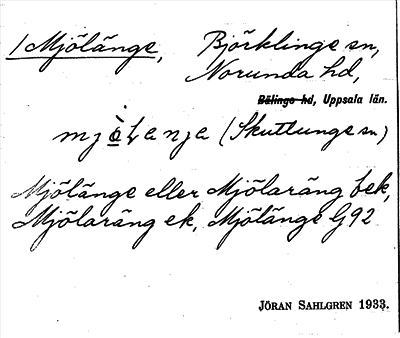 / Mjölänge, Björklinge sn,
Norunda hd,
Bälinge hd, Uppsala län.
(Skuttunge sn)
Mjölänge eller Mjölaräng bek,
Mjölaräng ek, Mjölänge G92
JÖRAN SAHLGREN 1933.